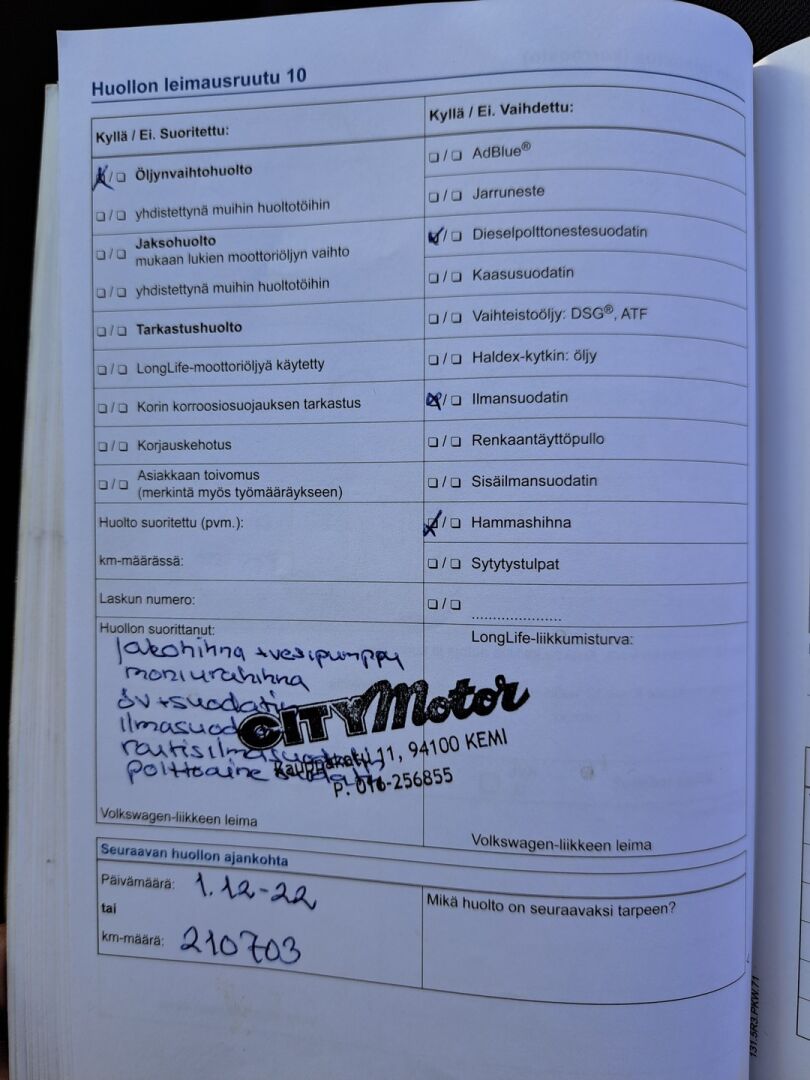 Huollon leimausruutu 10
Kyllä / Ei. Suoritettu:
/ Öljynvaihtohuolto
/ yhdistettynä muihin huoltotöihin
/ Jaksohuolto
mukaan lukien moottoriöljyn vaihto
/ yhdistettynä muihin huoltotöihin
/ Tarkastushuolto
/ LongLife-moottoriöljyä käytetty
/ Korin korroosiosuojauksen tarkastus
/ Korjauskehotus
/ Asiakkaan toivomus
(merkintä myös työmääräykseen)
Huolto suoritettu (pvm.):
km-määrässä:
Laskun numero:
Kyllä / Ei. Vaihdettu:
/ AdBlue®
/ Jarruneste
/ Dieselpolttonestesuodatin
/ Kaasusuodatin
/ Vaihteistoöljy: DSG®, ATF
/ Haldex-kytkin: öljy
/ Ilmansuodatin
/ Renkaantäyttöpullo
/ Sisäilmansuodatin
/ Hammashihna
/ Sytytystulpat
/ .....................
Huollon suorittanut:
jakohihna + vesipumppu
moniurahihna
öv + suodatin
ilmasuod
raitisilmasuodatin
polttoaine
CITY Motor
11, 94100 KEMI
P. 016-256855
Volkswagen-liikkeen leima
LongLife-liikkumisturva:
Volkswagen-liikkeen leima
Seuraavan huollon ajankohta
Päivämäärä: 1.12-22
tai
km-määrä: 210703
Mikä huolto on seuraavaksi tarpeen?
131.5R3.PKW.71